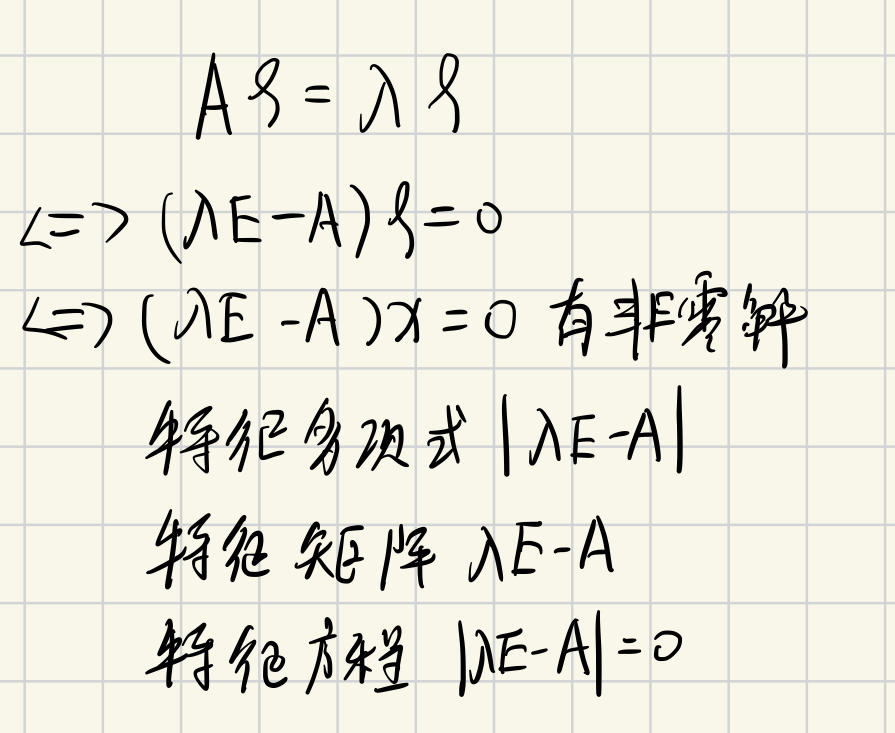 Aξ = λξ
<=> (λE-A)ξ=0
<=> (λE-A)x=0 有非零解
特征多项式 |λE-A|
特征矩阵 λE-A
特征方程 |λE-A|=0